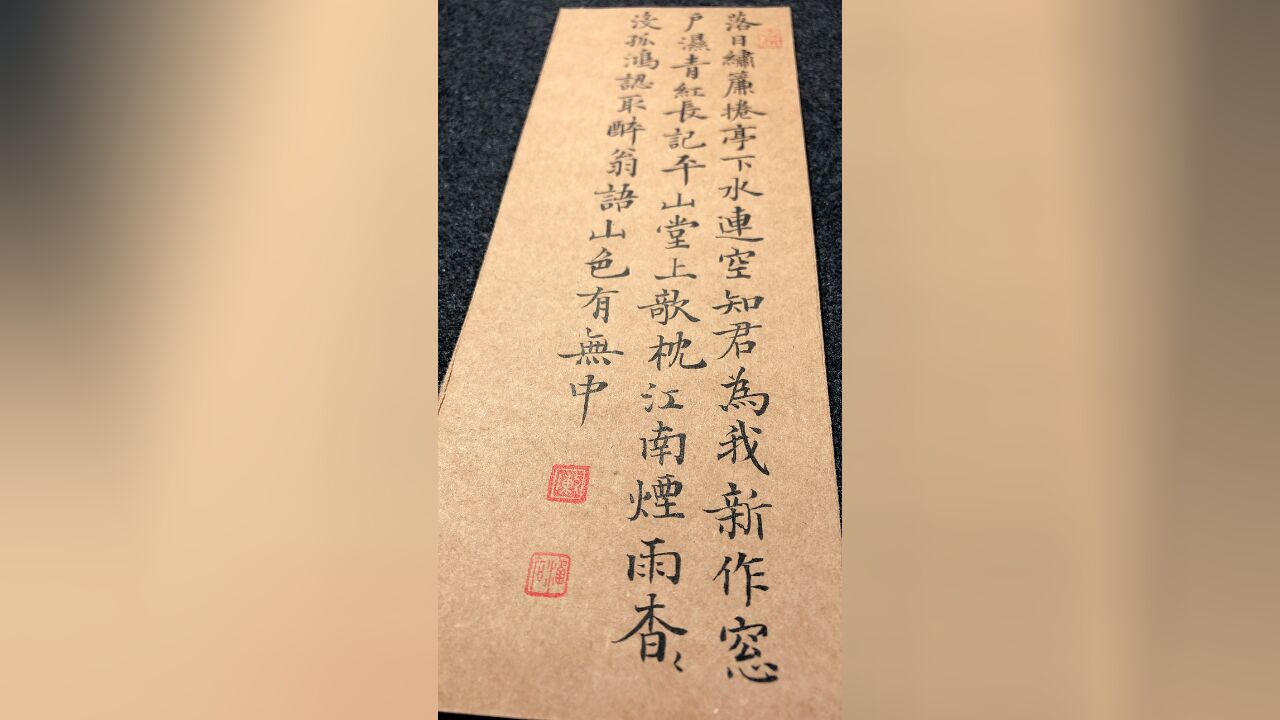 落日繡簾捲亭下水連空知君為我新作窓
戶濕青紅長記平山堂上欹枕江南煙雨杳〻
没孤鴻認取醉翁語山色有無中